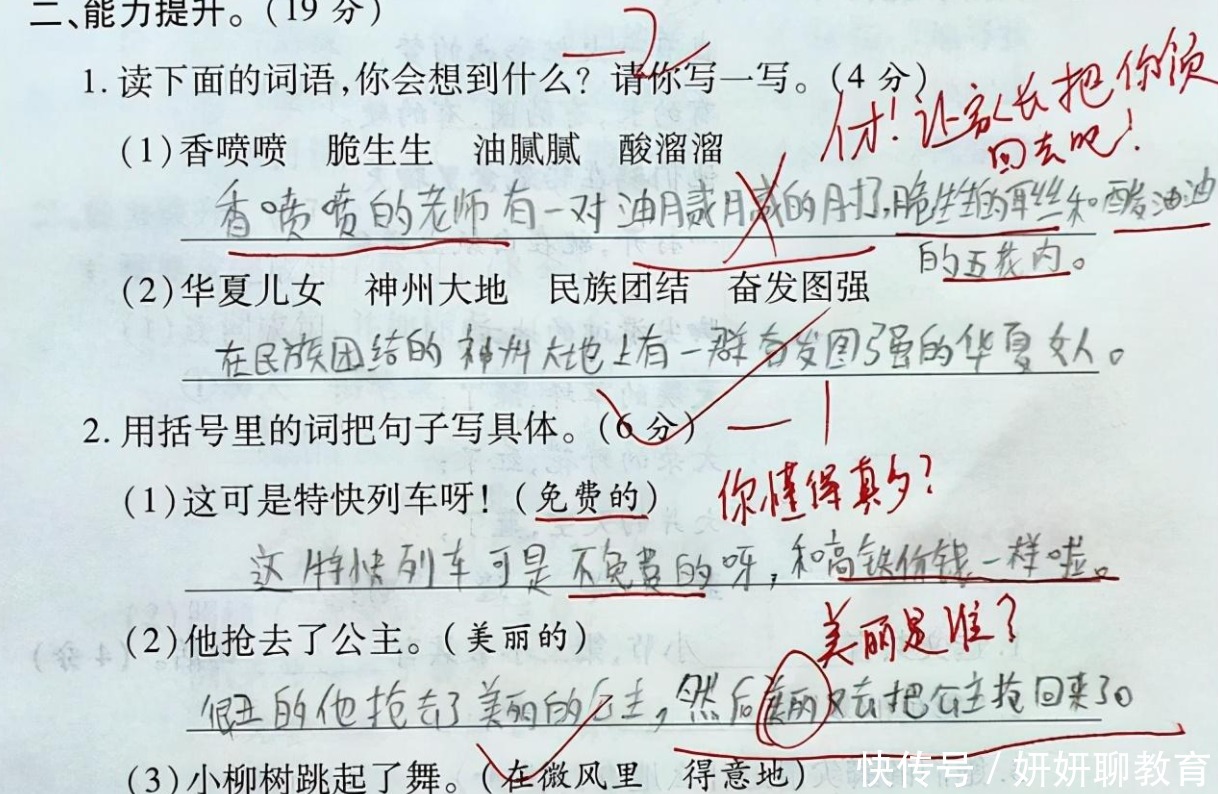 二、能力提升。(19 分)
-2
1. 读下面的词语,你会想到什么? 请你写一写。(4 分)
才!让家长把你领
回去吧!
(1)香喷喷 脆生生 油腻腻 酸溜溜
香喷喷的老师有一对油腻腻的肘子,脆生生的耳丝和酸油油
的五花肉。
(2)华夏儿女 神州大地 民族团结 奋发图强
在民族团结的神州大地上有一群奋发图强的华夏女人。
2. 用括号里的词把句子写具体。(6 分) -1
(1)这可是特快列车呀!(免费的) 你懂得真多?
这特快列车可是不免费的呀,和高铁价钱一样啦。
(2)他抢去了公主。(美丽的) 美丽是谁?
的他抢去了美丽的公主,然后美丽又去把公主抢回来了。
(3)小柳树跳起了舞。(在微风里 得意地)
快传号 / 妍妍聊教育